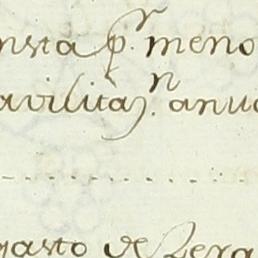 nsta p.r meno
avilitan. anua
gasto de Lexa